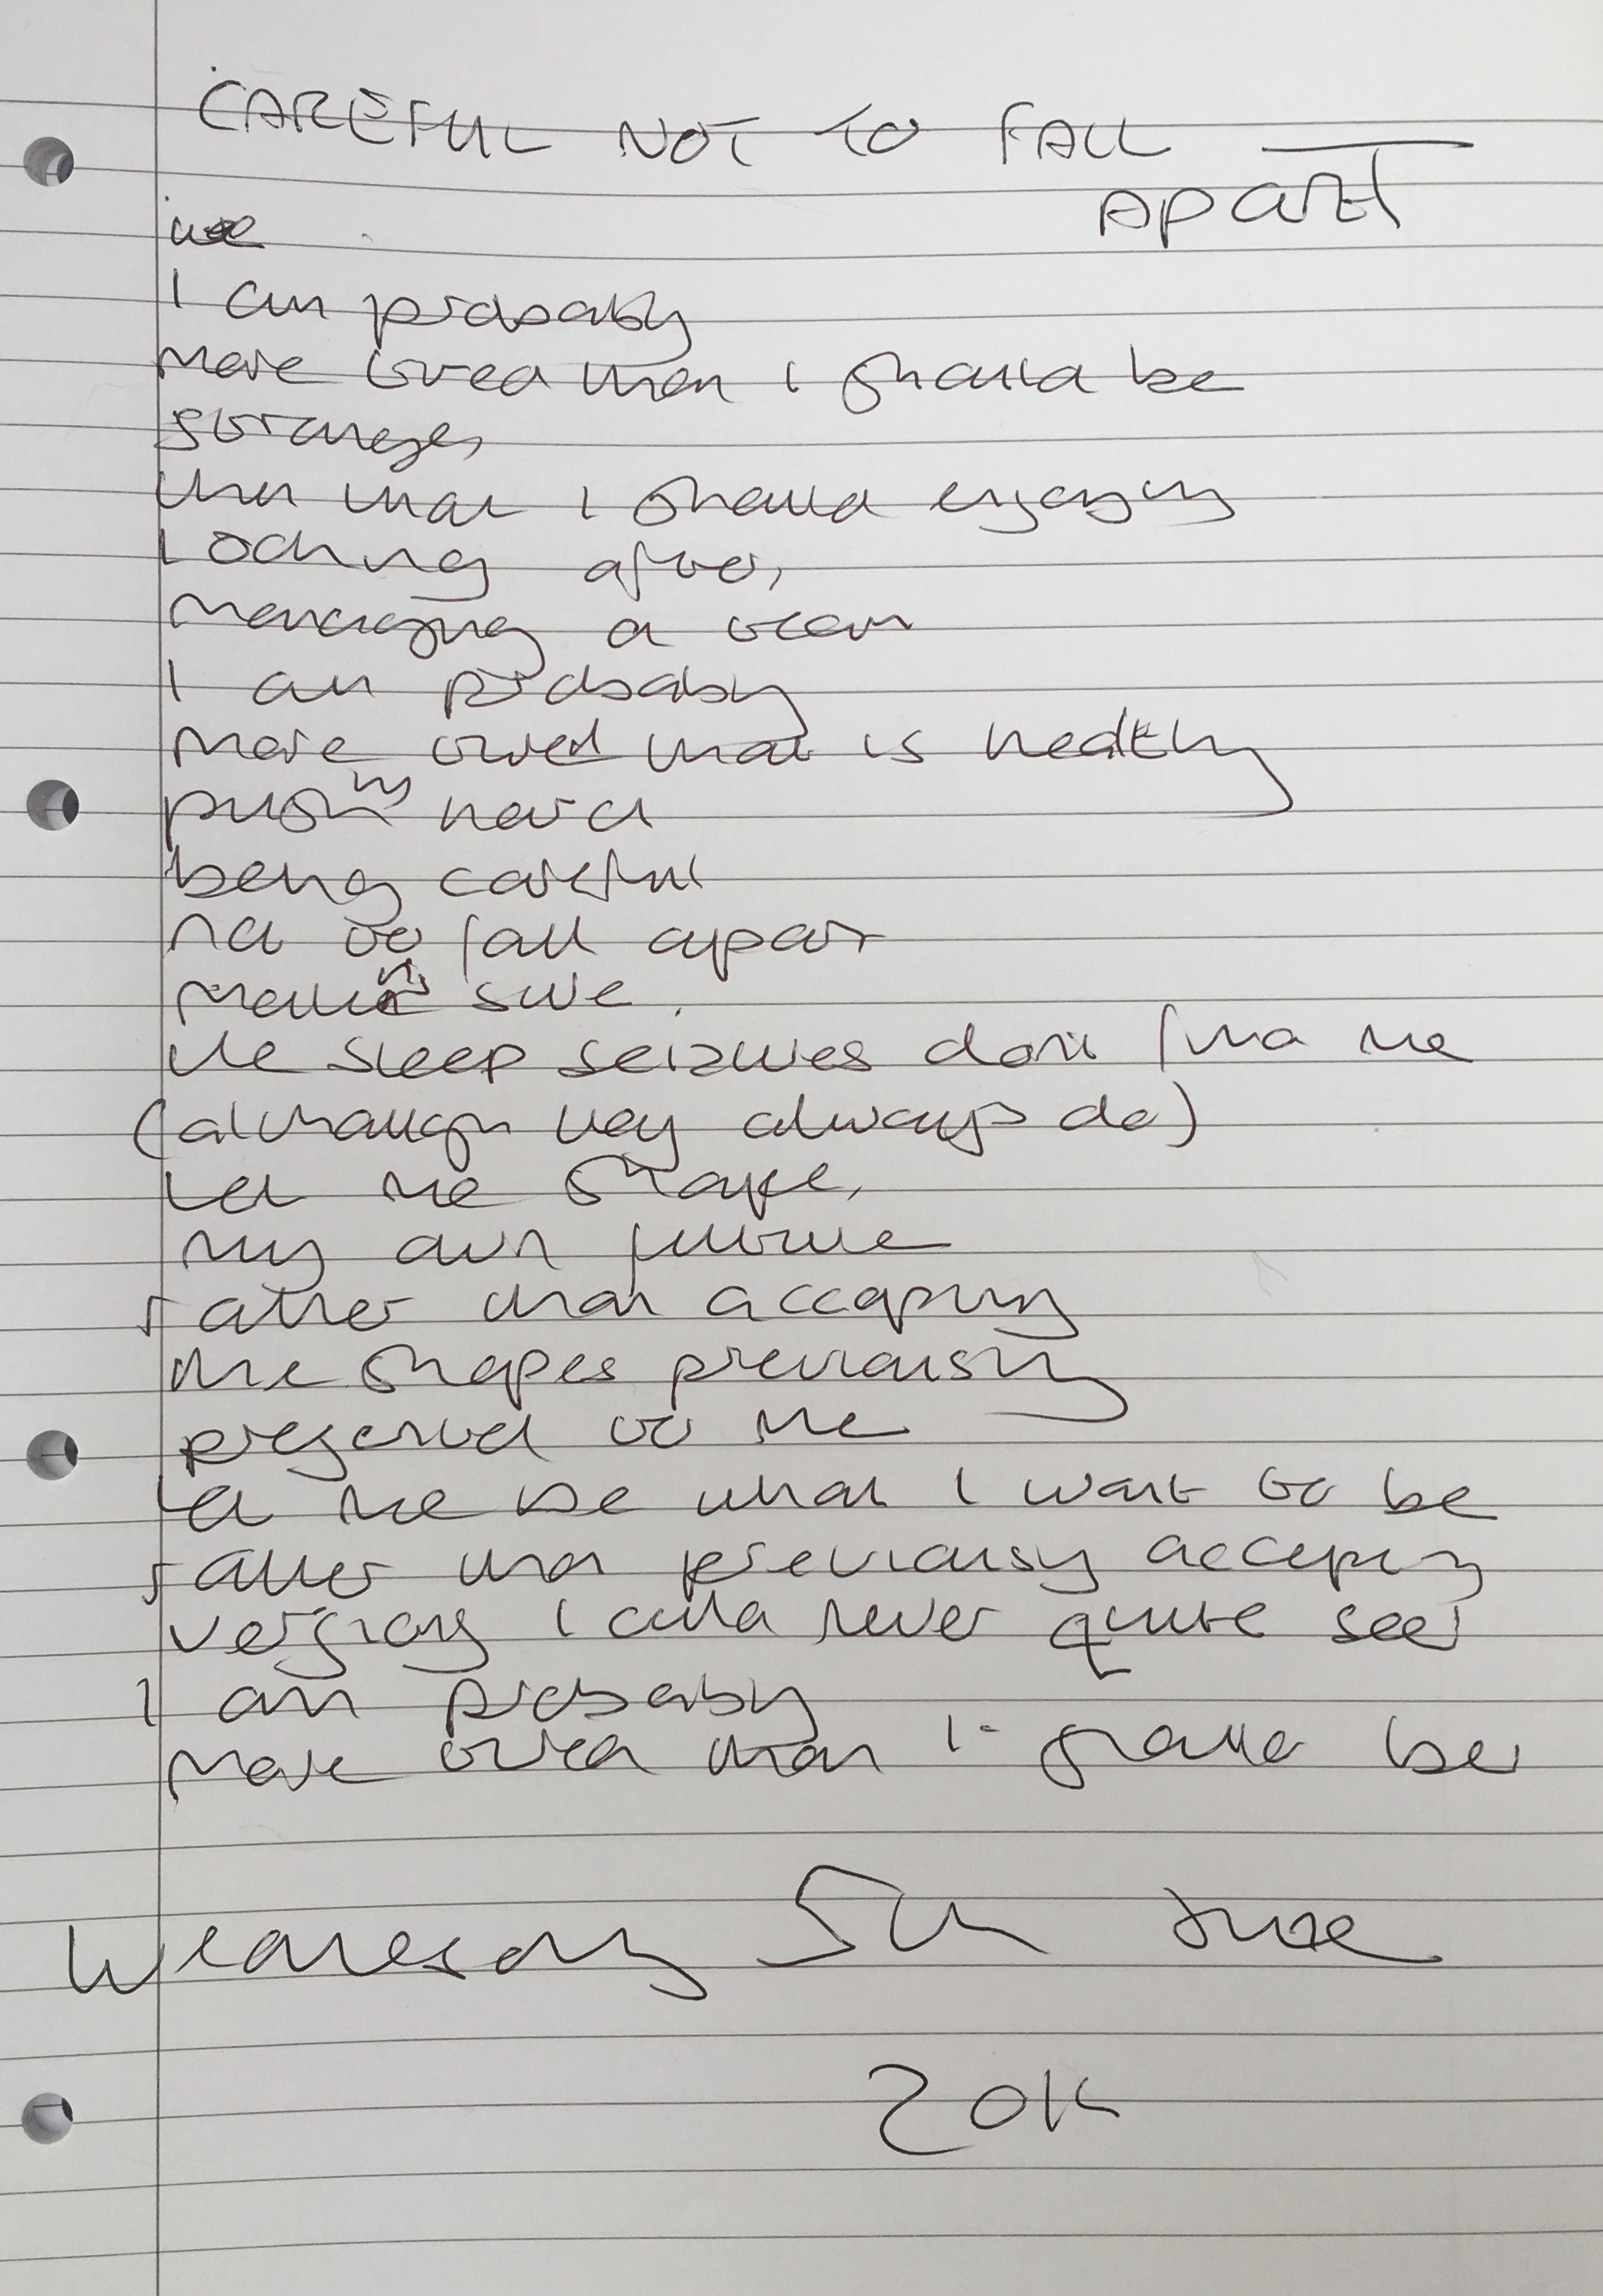 CAREFUL NOT TO FALL
APART
I am probably
more tired than I should be
stranger,
than that I should enjoying
looking after,
managing a team
I am probably
more tired that is healthy
pushing hard
being careful
not to fall apart
making sure
the sleep seizures don't find me
(although they always do)
let me shape,
my own future
rather than accepting
the shapes previously
presented to me
let me be what I want to be
rather than previously accepting
versions I could never quite see
I am probably
more tired than I should be
Wednesday 5th June